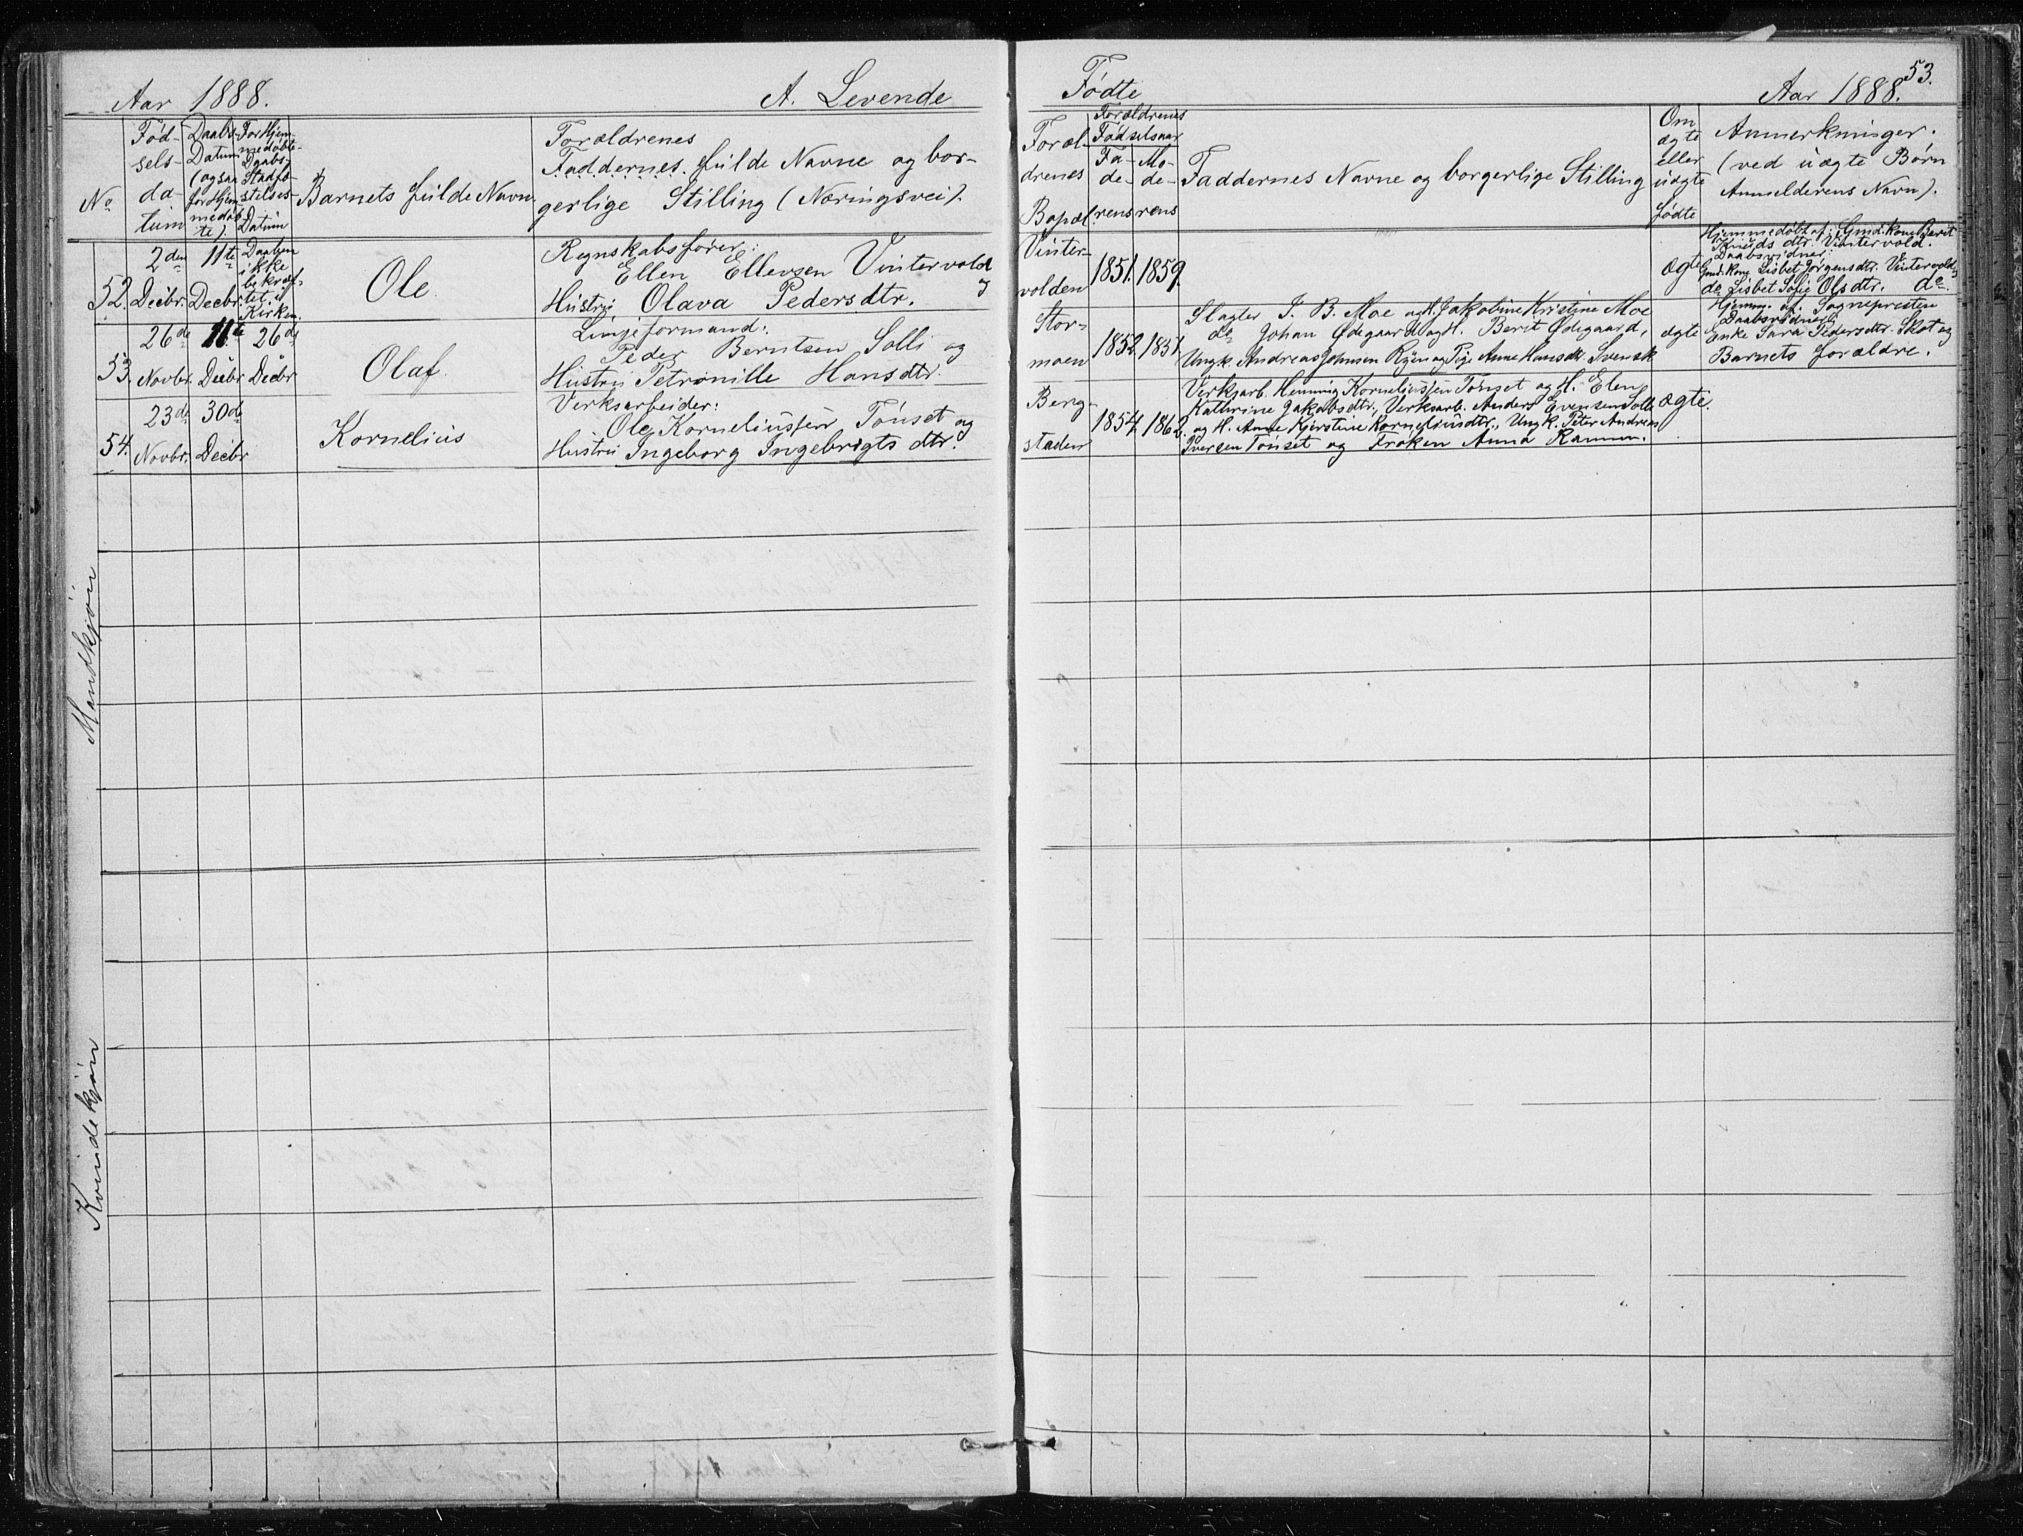 Aar 1888.
A. Levende
Fødte
Aar 1888.
53.
No
Fød-
sels-
da-
tum
Daabs-
Datum
(ogsaa
for Hjem-
medøb-
te).
For Hjem-
medøbte-
Daabs-
Stadfæ-
stelses-
Datum
Barnets fulde Navn.
Forældrenes
Faddernes fulde Navne og bor-
gerlige Stilling (Næringsvei).
Foræl-
drenes
Bopæl.
Forældrenes
Fødselsaar
Fa-
de-
rens
Mo-
de-
rens
Faddernes Navne og borgerlige Stilling
Om
ægte
eller
uægte
fødte
Anmerkninger.
(ved uægte Børn
Anmelderens Navn).
Mandkjøn
52.
2den
Decbr.
11te
Decbr.
Daaben
ikke
bekræf-
tet i
Kirken.
Ole.
Regnskabsfører:
Ellen Ellevsen Vintervold
Hustru Olava Pedersdtr.
Vinter-
volden
1851.
1859.
ægte
Hjemmedøbt af: Gmd.kone Berit
Knuds dtr. Vintervold.
Daabsvidner:
Gmd. Kone Lisbet Jørgensdtr. Vintervolden
do Lisbet Sofie Olsdtr. do.
53.
26de
Novbr.
11te
Decbr
26de
Decbr
Olaf.
Linjeformand:
Peder Berntsen Solli og
Hustru Petronille Hansdtr.
Stor-
moen
1852.
1851.
Slagter J. B. Moe og H. Jakobine Kristine Moe
do Johan Ødegaard og H. Berit Ødegaard,
Ungk. Andreas Johnsen Ryen og Pige Anne Hansdtr. Svensk
ægte
Hjemm. af Sognepresten
Daabsvidner:
Enke Sara Pedersdtr. Skot og
Barnets Forældre.
54.
23de
Novbr.
30de
Decbr
Kornelius
Verksarbeider:
Ole Korneliussen Tønset og
Hustru Ingeborg Ingebrigts dtr.
Berg-
staden
1854.
1862.
Verksarb. Henning Korneliussen Tønset og H. Elen
Kathrine Jakobsdtr., Verksarb. Anders Evensen Solli
og H. Anne Kjerstine Korneliusdtr., Ungk. Peter Andreas
Iversen Tønset og Frøken Anna
ægte.
Kvindekjøn